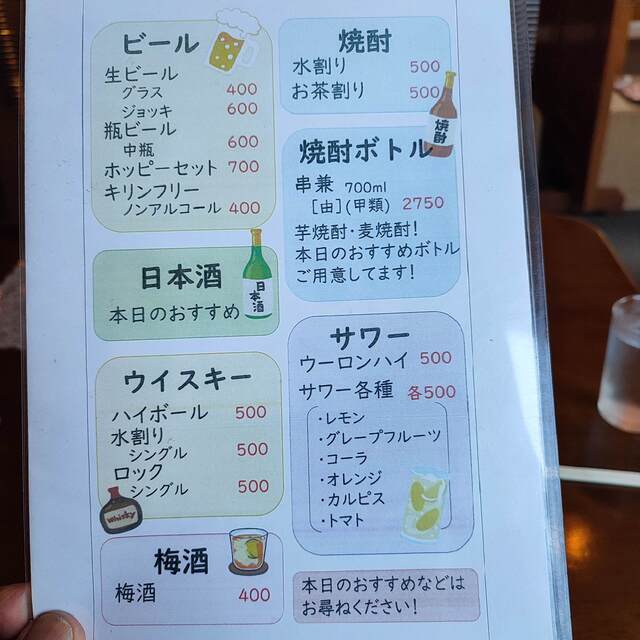 ビール
生ビール
グラス 400
ジョッキ 600
瓶ビール
中瓶 600
ホッピーセット 700
キリンフリー
ノンアルコール 400
日本酒
日本酒
本日のおすすめ
ウイスキー
ハイボール 500
水割り
シングル 500
ロック
シングル 500
Whisky
梅酒
梅酒 400
焼酎
水割り 500
お茶割り 500
焼酎
焼酎ボトル
串兼 700ml
[由](甲類) 2750
芋焼酎・麦焼酎!
本日のおすすめボトル
ご用意してます!
サワー
ウーロンハイ 500
サワー各種 各500
・レモン
・グレープフルーツ
・コーラ
・オレンジ
・カルピス
・トマト
本日のおすすめなどは
お尋ねください!